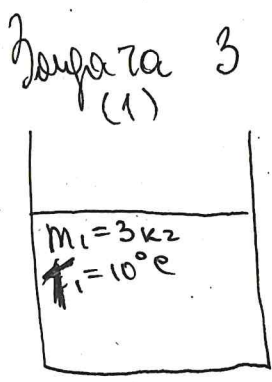 Задача 3
(1)
m₁ = 3 кг
t₁ = 10°C